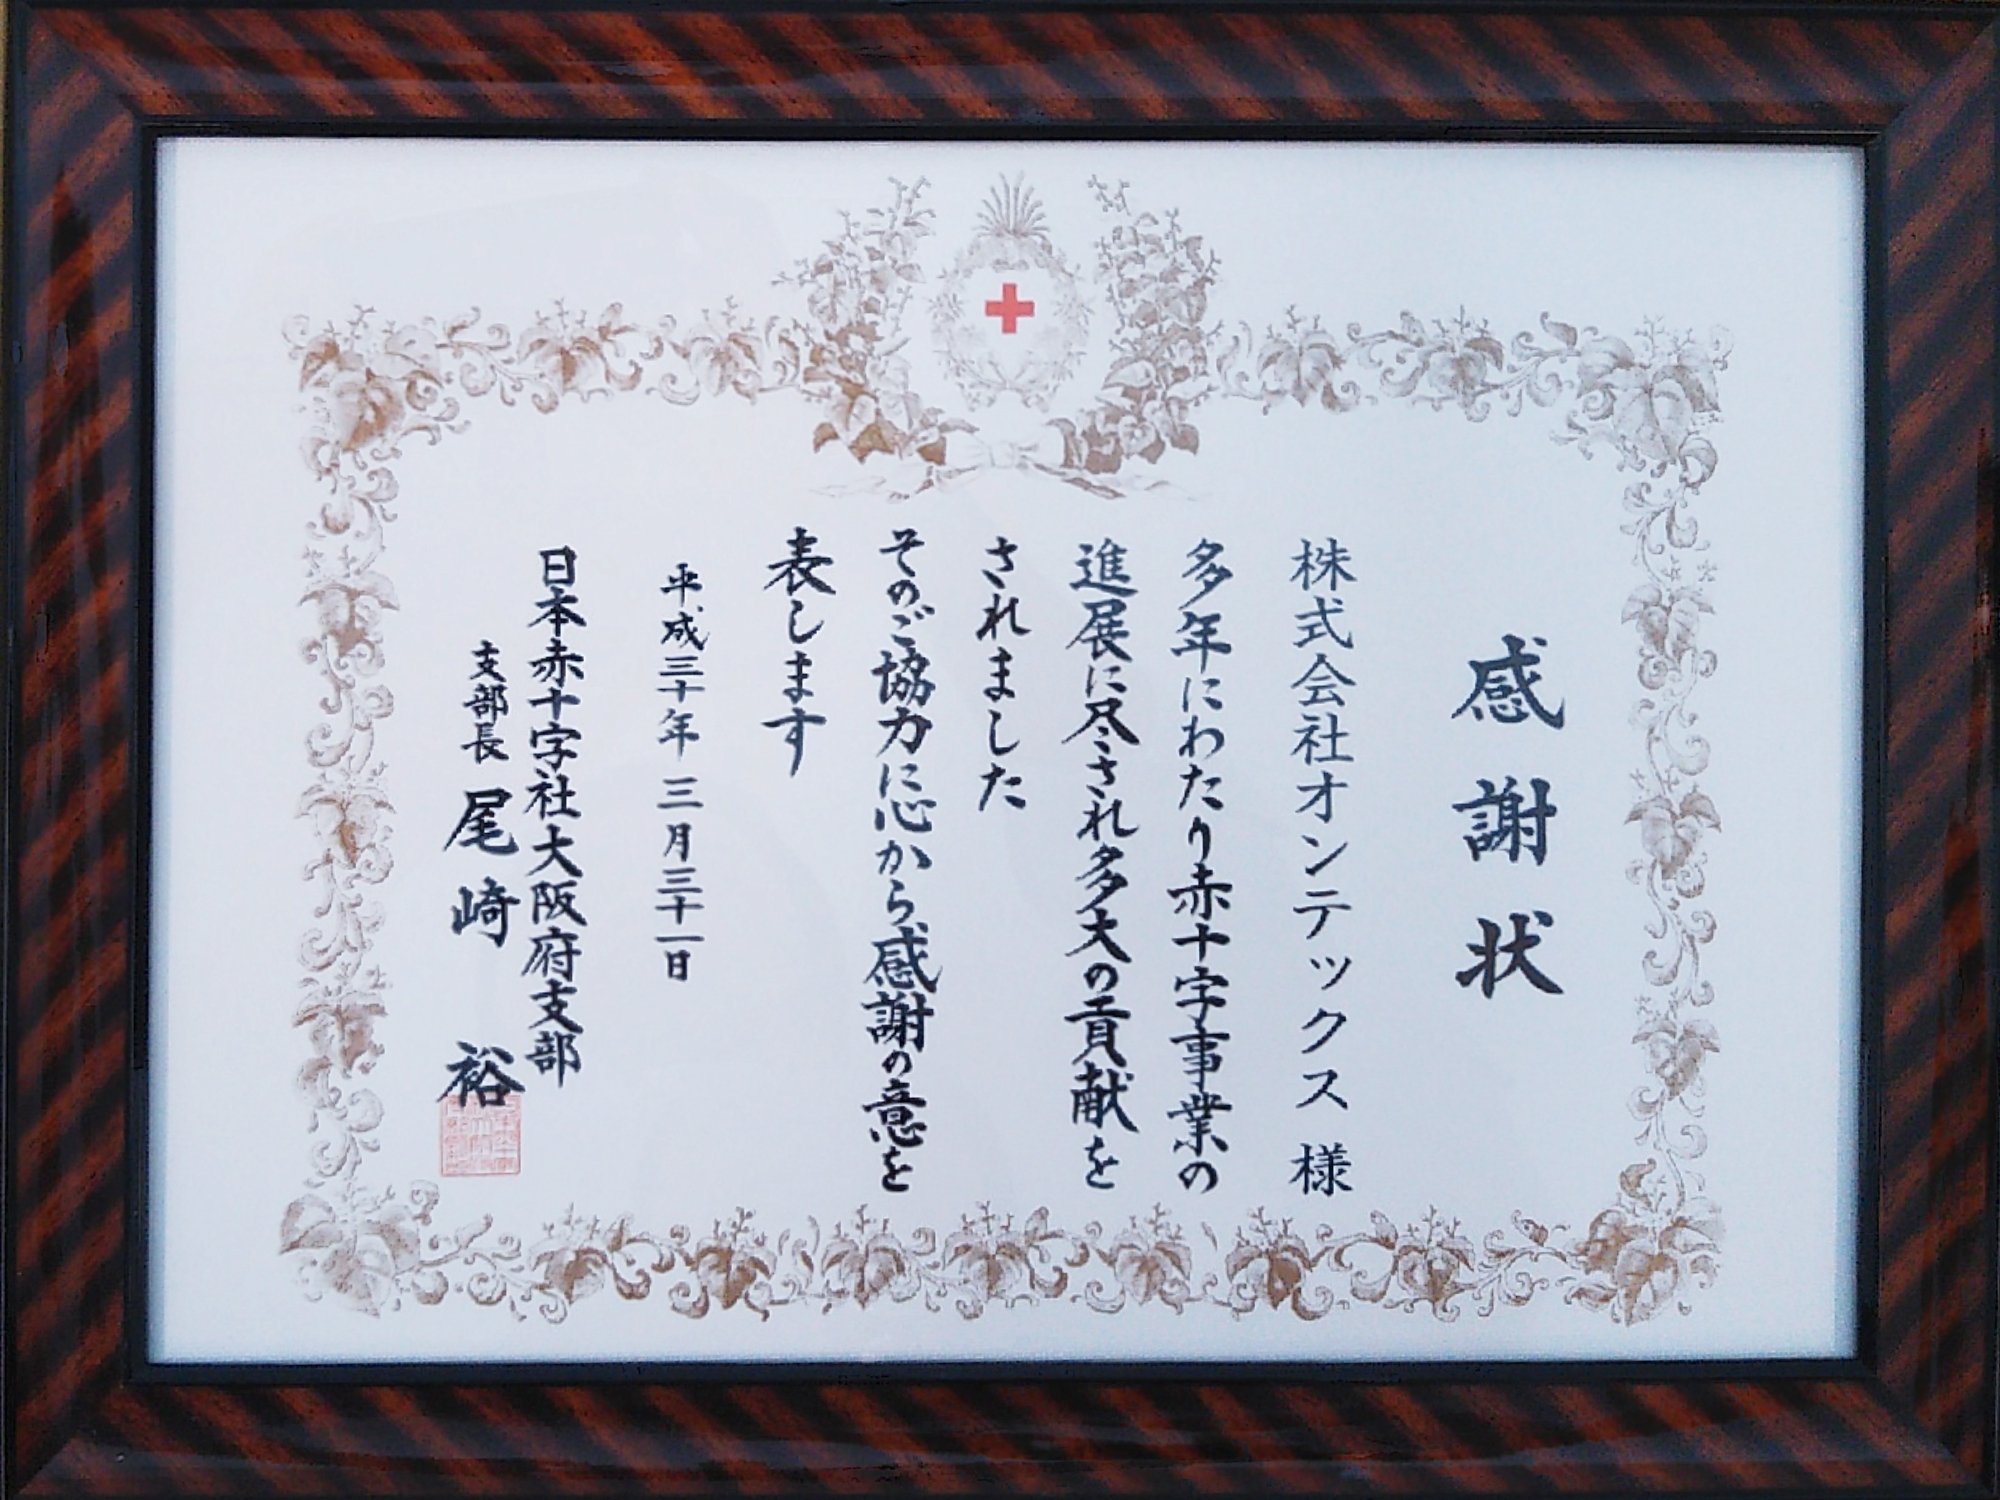 感謝状
株式会社オンテックス様
多年にわたり赤十字事業の
進展に尽され多大の貢献を
されました
そのご協力に心から感謝の意を
表します
平成三十年三月三十一日
日本赤十字社大阪府支部
支部長 尾崎 裕